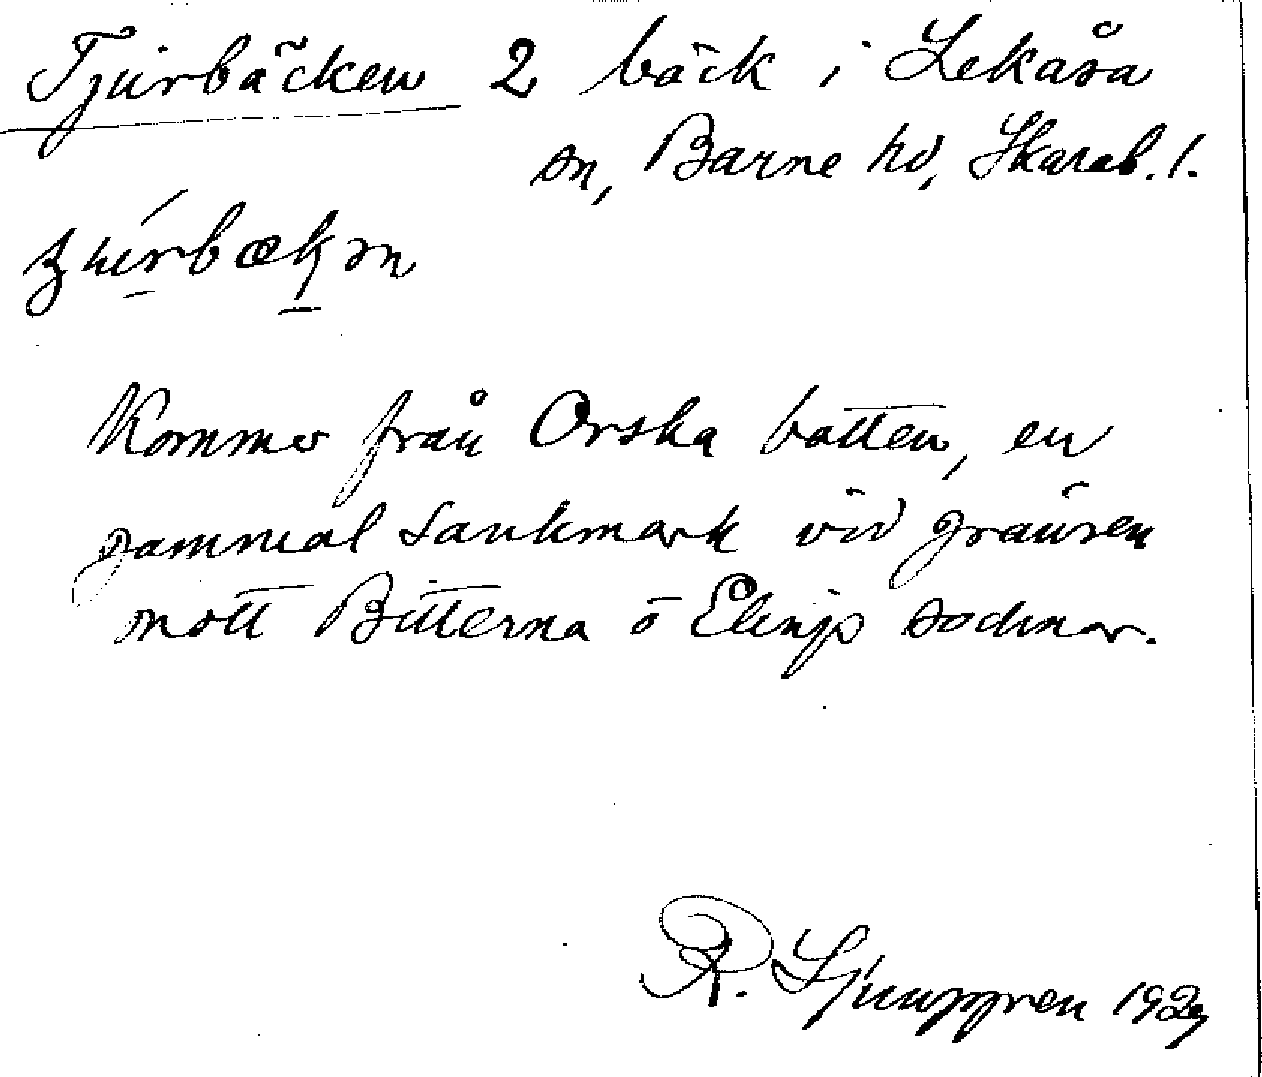 Tjurbäcken 2 bäck i Lekåsa
sn, Barne hd, Skarab. l.
Kommer från Orska botten, en
gammal sankmark vid gränsen
mott Bitterna o Elings socknar.
R. Ljunggren 192